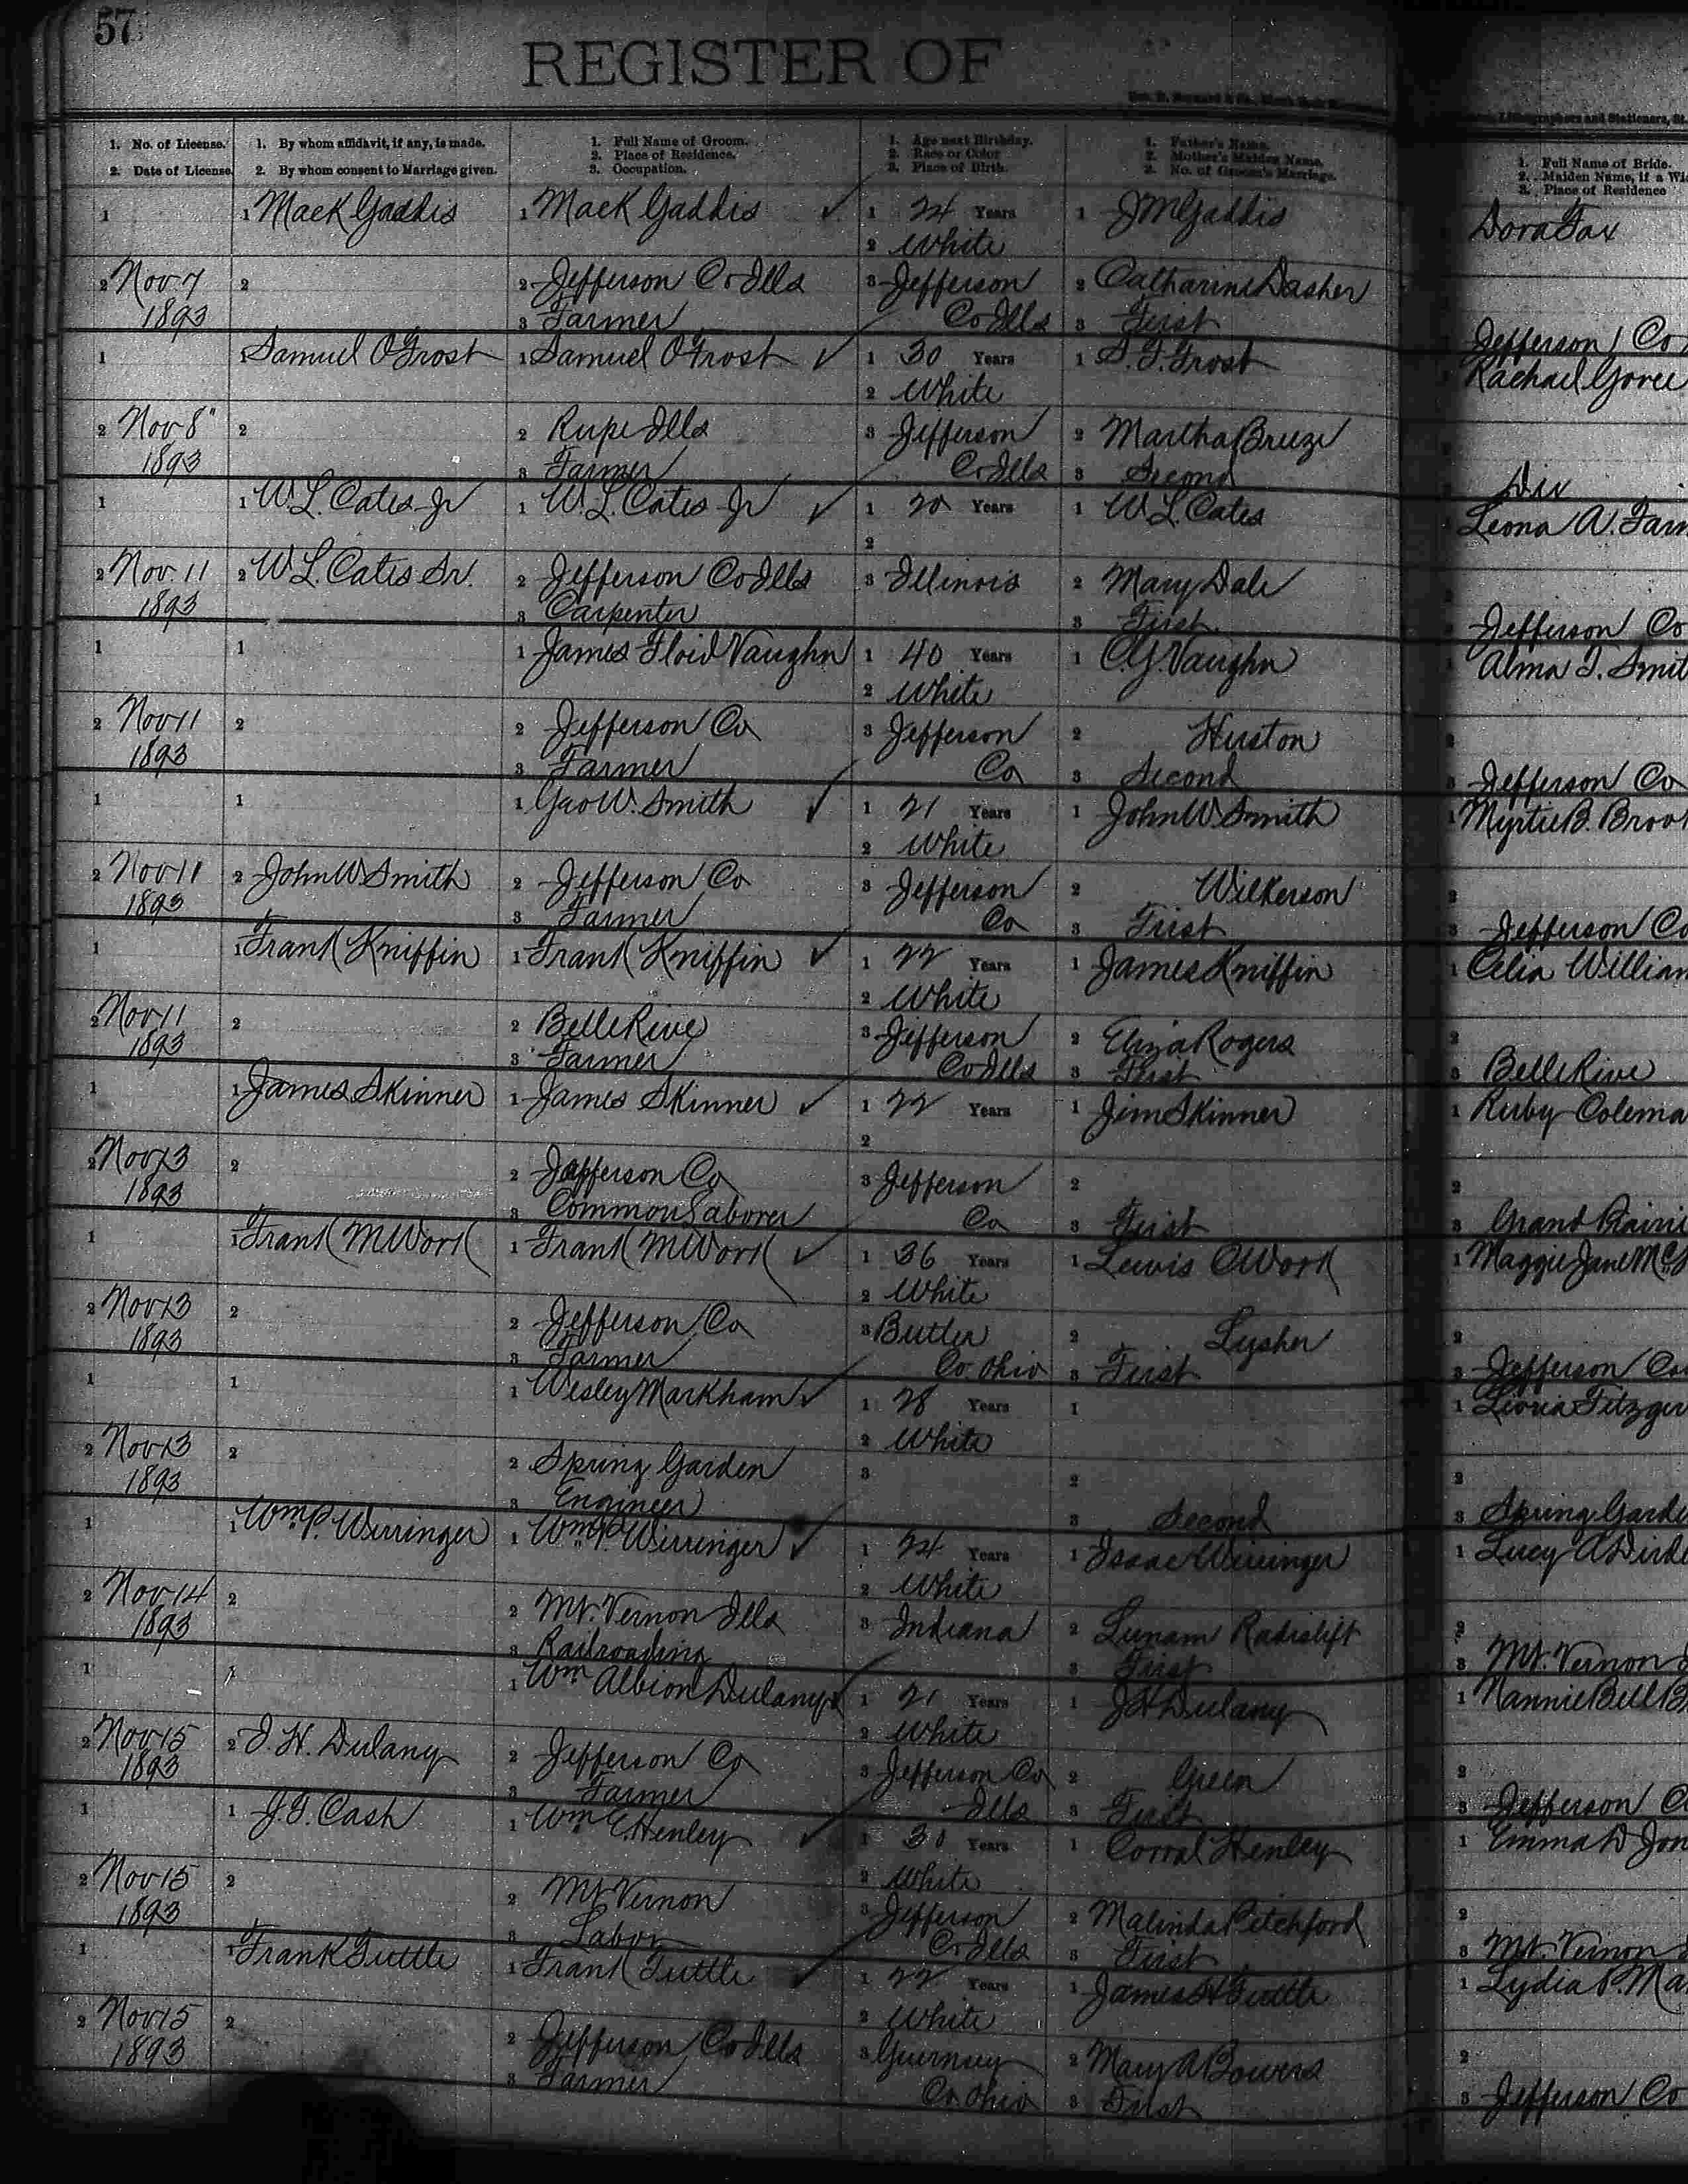 57
REGISTER OF
1. No. of License.
2. Date of License.
1. By whom affidavit, if any, is made.
2. By whom consent to Marriage given.
1. Full Name of Groom.
2. Place of Residence.
3. Occupation.
1. Age next Birthday.
2. Race or Color
3. Place of Birth.
1. Father's Name.
2. Mother's Maiden Name.
3. No. of Groom's Marriage.
Lithographers and Stationers, St.
1. Full Name of Bride.
2. Maiden Name, if a Wi
3. Place of Residence
1
1 Mack Gaddis
1 Mack Gaddis ✓
1 24 Years
1 J M Gaddis
Dora Fox
2 White
2 Nov. 7
1893
2
2 Jefferson Co Ills
3 Farmer
3 Jefferson
Co Ills
2 Catharine Dasher
3 First
Jefferson Co
1
1 Samuel O Frost
1 Samuel O Frost ✓
1 30 Years
1 S. T. Frost
Rachael Goree
2 White
2 Nov 8"
1893
2
2 Rupe Ills
3 Farmer
3 Jefferson
Co Ills
2 Martha Breeze
3 Second
Div
1
1 W. L. Cates Jr
1 W. L. Cates Jr ✓
1 20 Years
1 W. L. Cates
Leona A. Farm
2
2 Nov. 11
1893
2 W L. Cates Sr.
2 Jefferson Co Ills
3 Carpenter
3 Illinois
2 Mary Dale
3 First
Jefferson Co
1
1
1 James Floid Vaughn
1 40 Years
1 C. G. Vaughn
Alma I. Smit
2 White
2 Nov 11
1893
2
2 Jefferson Co
3 Farmer
3 Jefferson
Co
2 Huston
3 Second
3 Jefferson Co
1
1
1 Geo W. Smith ✓
1 21 Years
1 John W. Smith
1 Myrtie B. Broo
2 White
2 Nov 11
1893
2 John W Smith
2 Jefferson Co
3 Farmer
3 Jefferson
Co
2 Wilkerson
3 First
3 Jefferson Co
1
1 Frank Kniffin
1 Frank Kniffin ✓
1 22 Years
1 James Kniffin
1 Celia William
2 White
2 Nov 11
1893
2
2 Belle Rive
3 Farmer
3 Jefferson
Co Ills
2 Eliza Rogers
3 First
3 Belle Rive
1
1 James Skinner
1 James Skinner ✓
1 22 Years
1 Jim Skinner
1 Ruby Colema
2
2 Nov 13
1893
2
2 Jefferson Co
3 Common Laborer
3 Jefferson
Co
2
3 First
3 Grand Prairi
1
1 Frank M Work
1 Frank M Work ✓
1 36 Years
1 Lewis C Work
1 Maggie Jane Mc
2 White
2 Nov 13
1893
2
2 Jefferson Co
3 Farmer
3 Butler
Co. Ohio
2 Lysher
3 First
3 Jefferson Co
1
1
1 Wesley Markham ✓
1 28 Years
1
1 Fitzger
2 White
2 Nov 13
1893
2
2 Spring Garden
3 Engineer
3
2
3 Second
3 Spring Garde
1
1 Wm. P. Wirringer
1 Wm. P. Wirringer ✓
1 24 Years
1 Isaac Wirringer
1 Lucy A
2 White
2 Nov 14
1893
2
2 Mt. Vernon Ills
3 Railroading
3 Indiana
2
3 First
3 Mt. Vernon
1
1
1 Wm Albion Dulany ✓
1 21 Years
1 J H Dulany
1 Nannie Bell
2 White
2 Nov 15
1893
2 J. H. Dulany
2 Jefferson Co
3 Farmer
3 Jefferson Co
Ills
2 Green
3 First
3 Jefferson C
1
1 J. T. Cash
1 Wm. E. Henley ✓
1 30 Years
1 Corral Henley
1 Emma D Jon
2 White
2 Nov 15
1893
2
2 Mt Vernon
3 Labor
3 Jefferson
Co Ills
2 Malinda Pitchford
3 First
3 Mt. Vernon
1
1 Frank Tuttle
1 Frank Tuttle ✓
1 22 Years
1 James H Tuttle
1 Lydia P. Ma
2 White
2 Nov 15
1893
2
2 Jefferson Co Ills
3 Farmer
3 Guernsey
Co. Ohio
2 Mary A Bowers
3 First
3 Jefferson Co